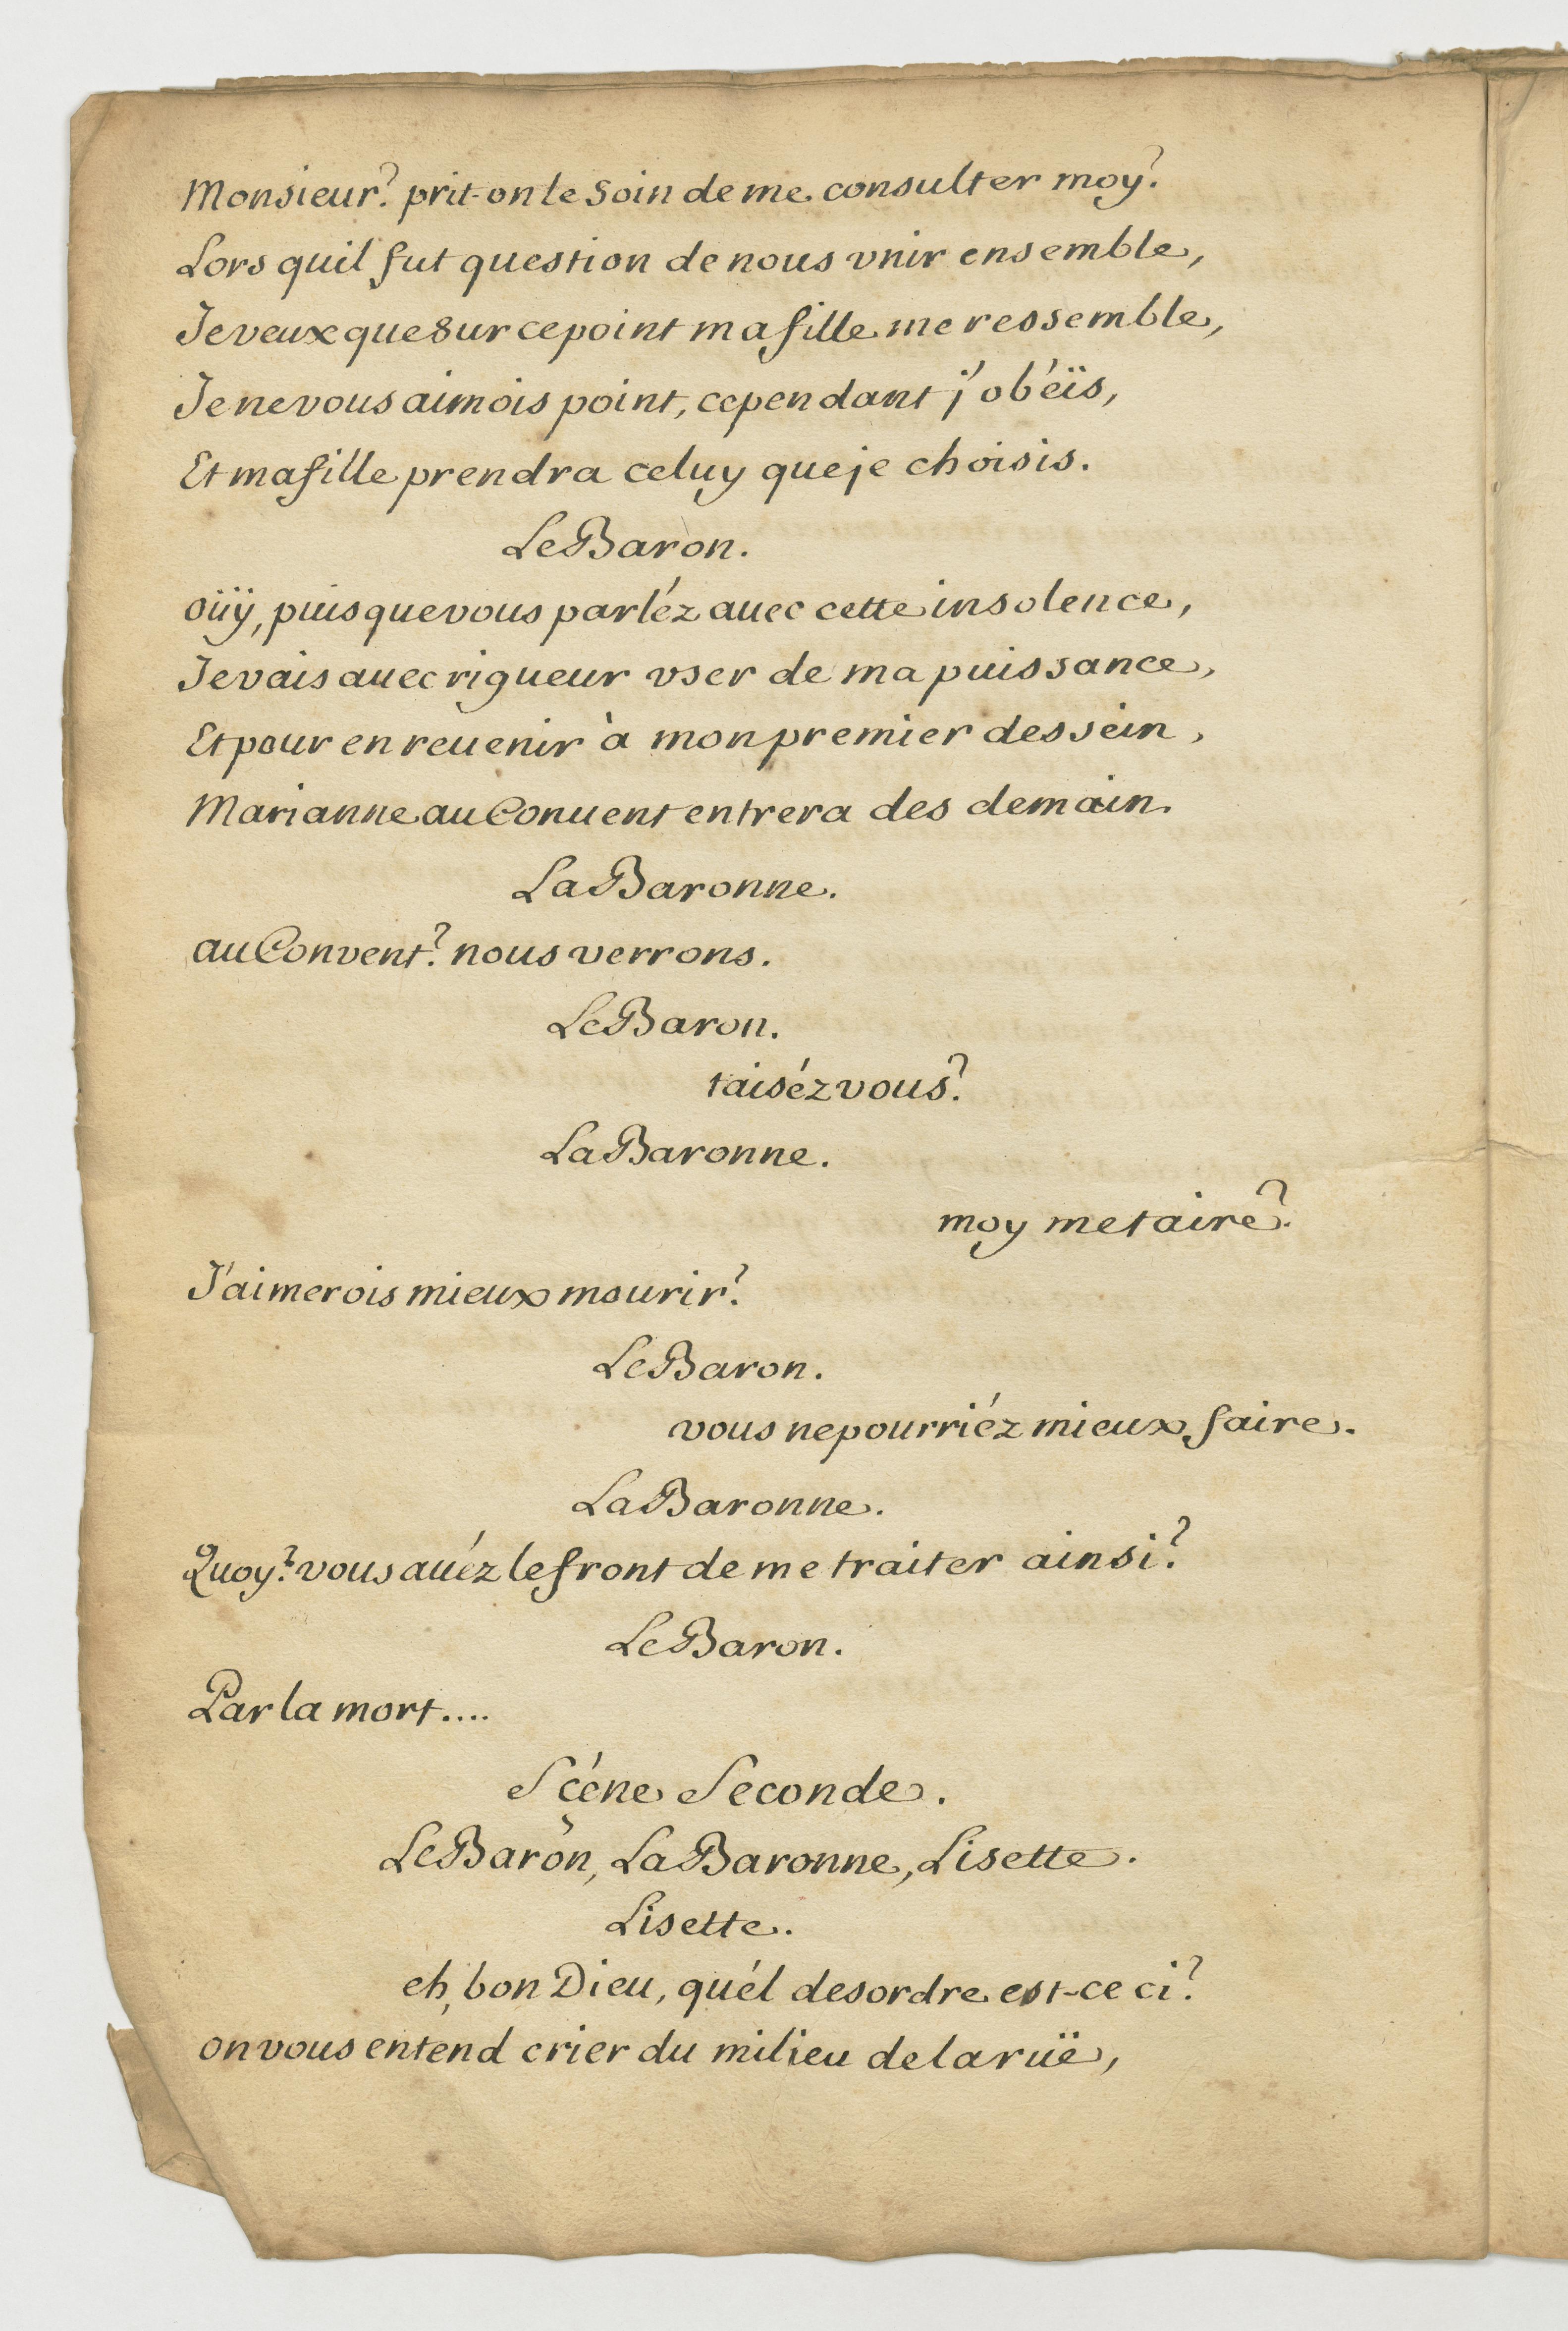 Monsieur? prit-on le soin de me consulter moy?
Lors quil fut question de nous vnir ensemble,
Je veux que sur ce point ma fille me ressemble,
Je ne vous aimois point, cependant j'obéïs,
Et ma fille prendra celuy que je choisis.
Le Baron.
oüÿ, puis que vous parléz auec cette insolence,
Je vais auec rigueur vser de ma puissance,
Et pour en reuenir à mon premier dessein,
Marianne au Conuent entrera des demain.
La Baronne.
au Convent? nous verrons.
Le Baron.
taiséz vous?
La Baronne.
moy me taire?
J'aimerois mieux mourir?
Le Baron.
vous ne pourriéz mieux faire.
La Baronne.
Quoy? vous auéz le front de me traiter ainsi?
Le Baron.
Par la mort....
Sçéne Seconde.
Le Baron, La Baronne, Lisette.
Lisette.
eh, bon Dieu, quél desordre est-ce ci?
on vous entend crier du milieu de la ruë,